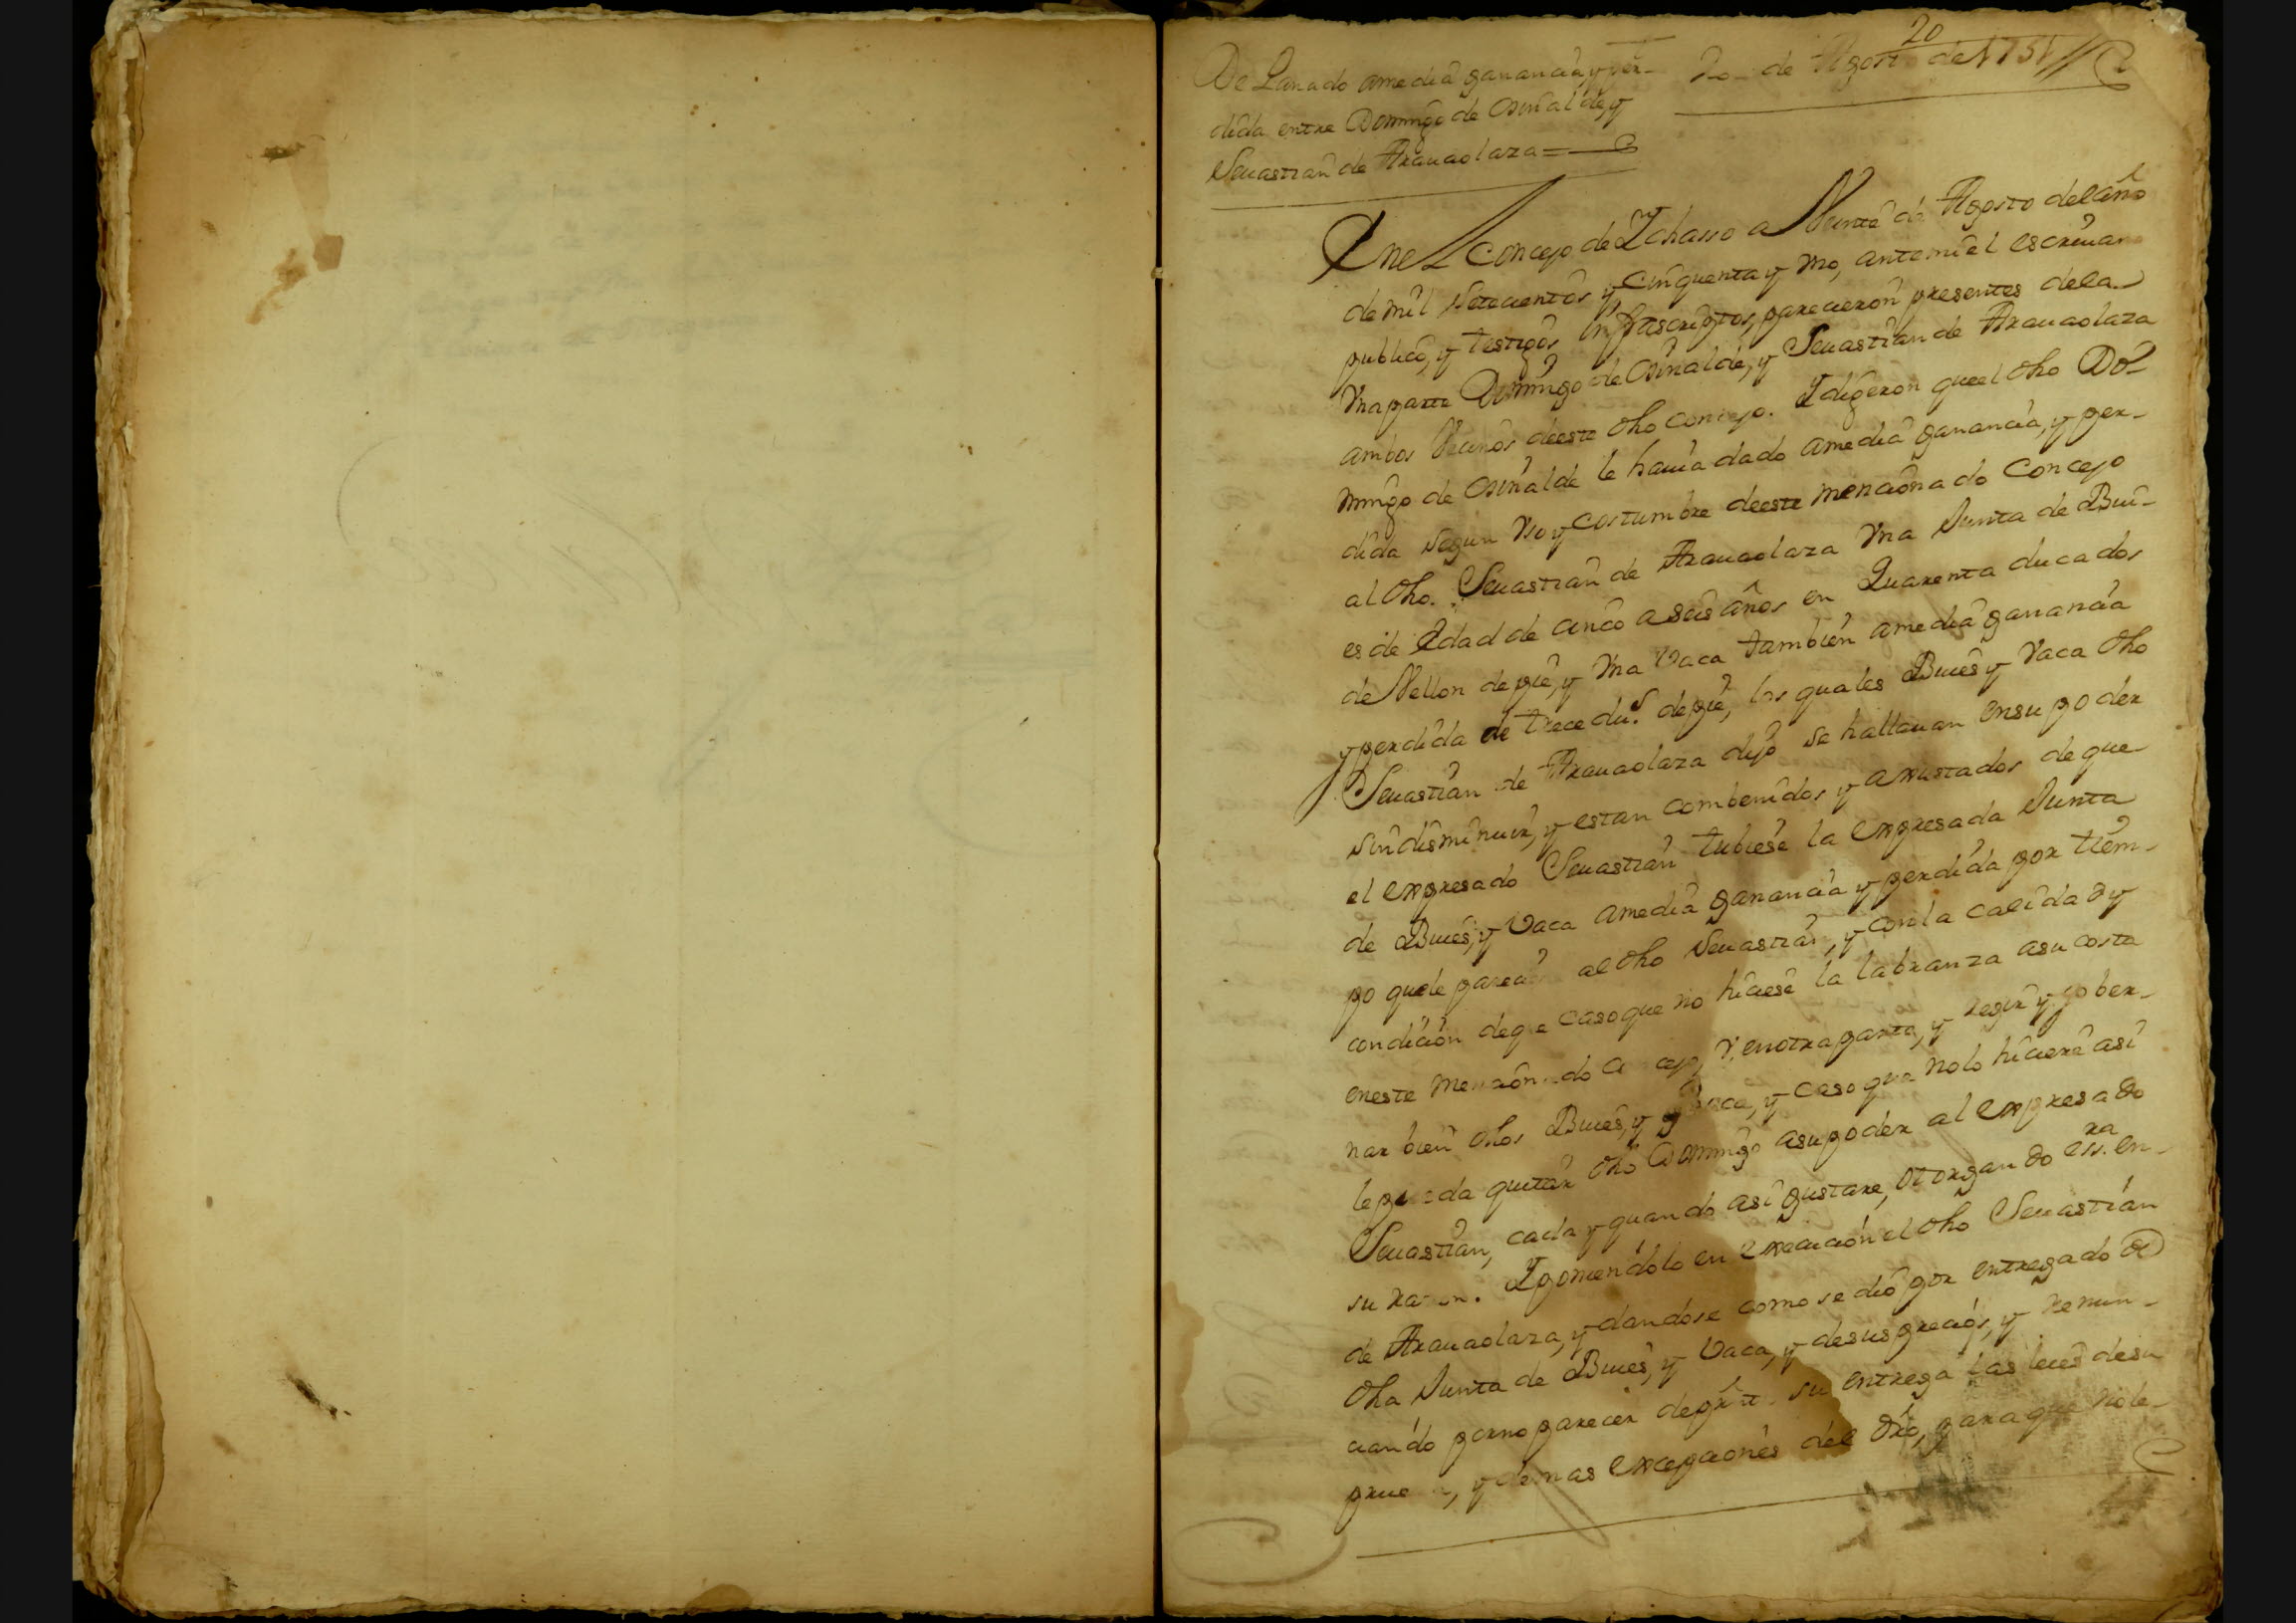 20
De Ganado amedia ganancia, y per-
dida entre Domingo de Osinalde, y
Seuastian de Arauaolaza =
20 de Agosto de 1751 //
Enel Concejo de Ichasso a Veinte de Agosto del año
de mil Setecientos y Cinquenta y Vno, antemi el escriuano
publico, y testigos infrascriptos, parecieron presentes dela
Vna parte Domingo de Osinalde, y Seuastian de Arauaolaza
ambos Vecinos deeste dho Concejo. Ydigeron queel dho Do-
mingo de Osinalde le hauia dado amedia ganancia, y per-
dida segun Vso y Costumbre deeste mencionado Concejo
al dho. Seuastian de Arauaolaza Vna Junta de Buei-
es de Edad de cinco a seis años en Quarenta ducados
de Vellon de pie, y Vna Vaca tambien amedia ganancia
y perdida de trece dus. depie, los quales Bueies y Vaca dho
Seuastian de Arauaolaza dijo se hallauan ensu poder
sindisminuir, y estan combenidos y axustados de que
el expresado Seuastian tubiese la expresada Junta
de Bueies, y Vaca amedia ganancia y perdida por tiem-
po quele parecia al dho Seuastian, y conla calidad y
condicion deque casoque no hiciese la labranza asu costa
eneste mencionado Concejo, enotra parte, y regir y gober-
nar bien dhos Bueies, y Vaca, y caso que nolo hiciere asi
le pueda quitar dho Domingo asu poder al expresado
Seuastian, cada y quando asi gustare, otorgando essra. en
su razon. Yponiendolo en execucion el dho Seuastian
de Arauaolaza, y dandose como se dio por entregado de
dha Junta de Bueies, y Vaca, y desus precios, y renun-
ciando porno parecer su entrega las leies desu
prueba, y demas excepciones del dro, para que nole